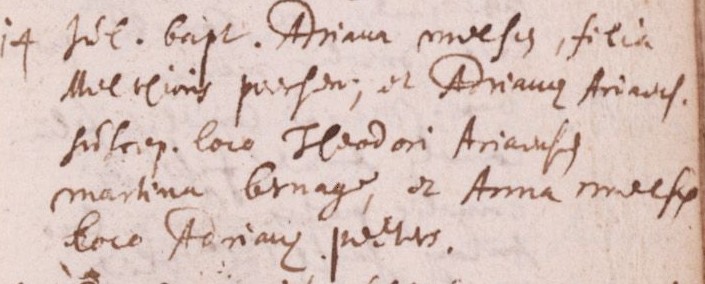 14 Jul. bapt. Adriana melses, filia
Melchioris peeters, et Adriana Ariaens.
suscep. loco Theodori Ariaenses
martina bernage, et Anna melses
loco Adriana peeters.